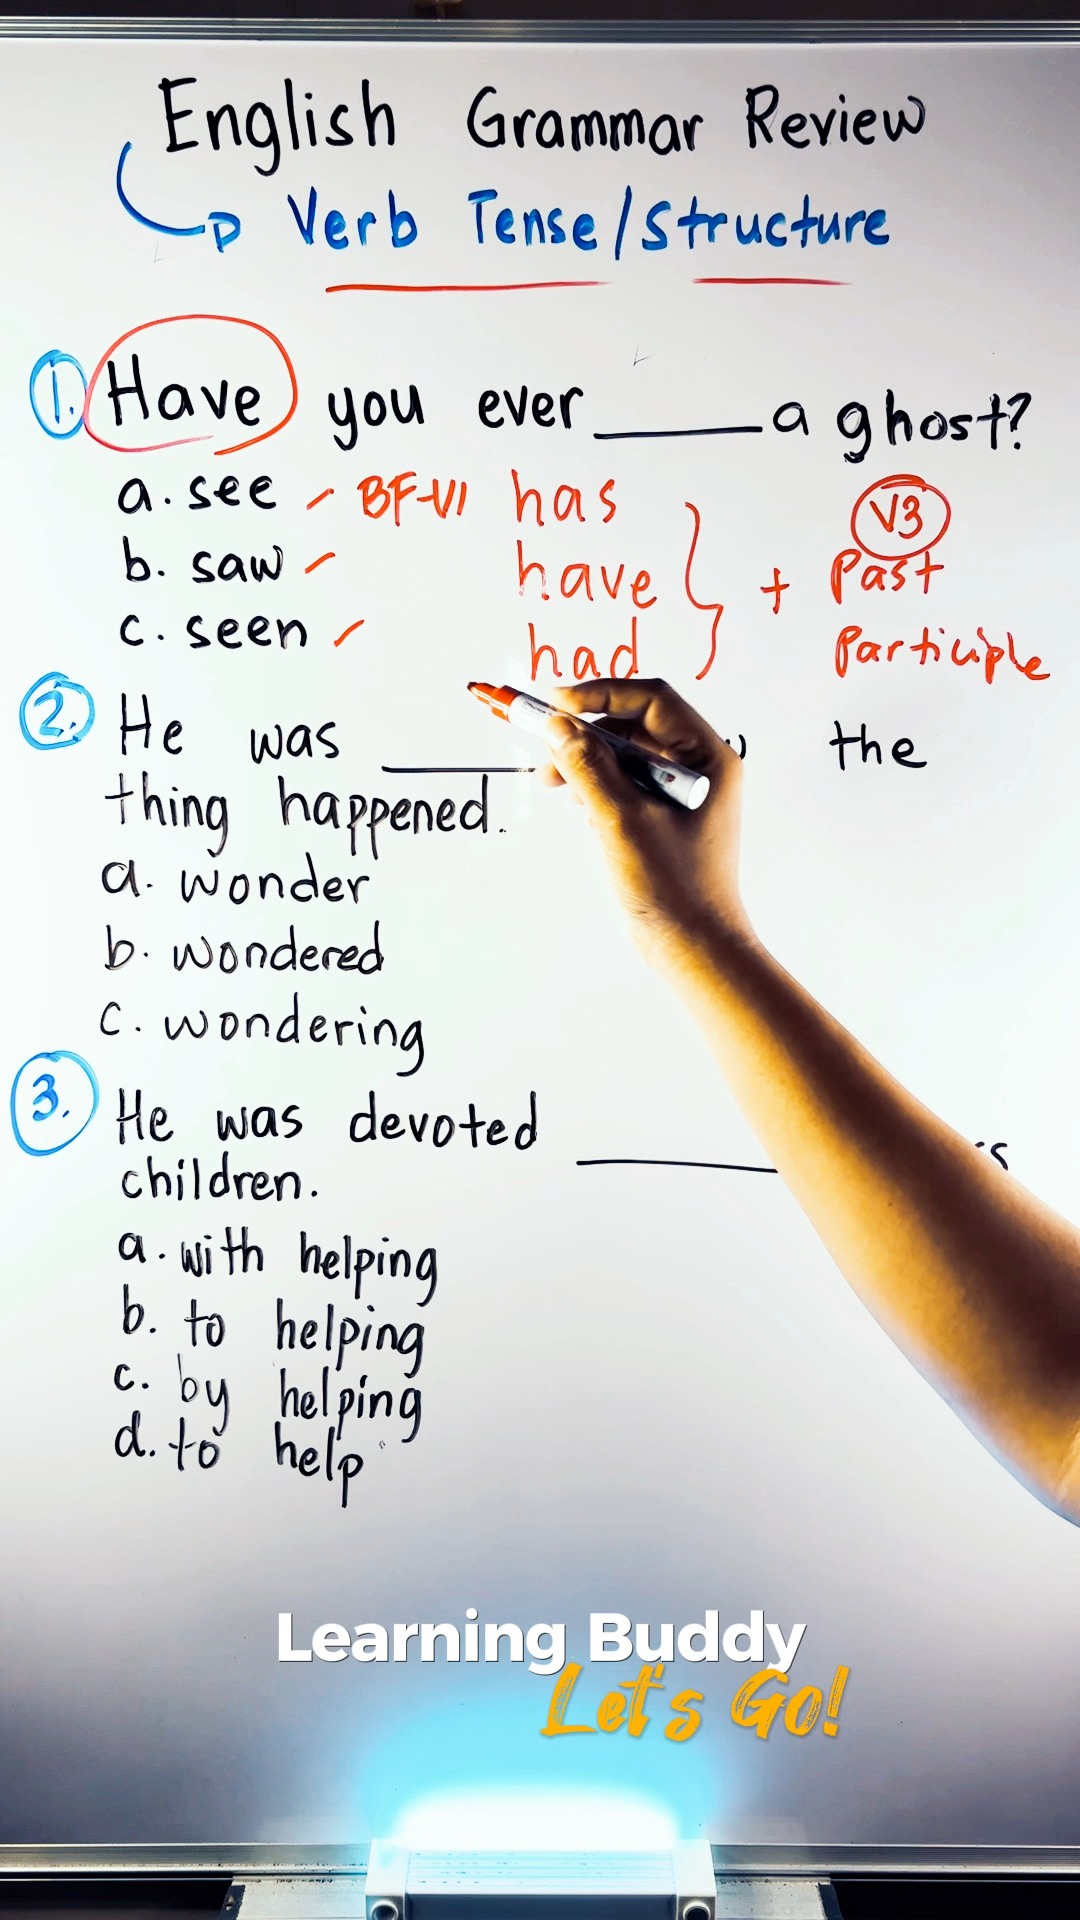 English Grammar Review
Verb Tense/Structure
1. Have you ever ____ a ghost?
a. see BF-V1 has V3
b. saw have } + Past
c. seen had Participle
2. He was ____ the
thing happened.
a. wonder
b. wondered
c. wondering
3. He was devoted ____
children.
a. with helping
b. to helping
c. by helping
d. to help
Learning Buddy
Let's Go!